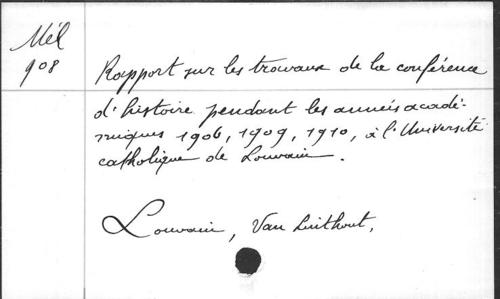 Mél
908
Rapport sur les travaux de la conférence
d'histoire pendant les années acadé-
miques 1906, 1909, 1910, à l'Université
catholique de Louvain.
Louvain, Van Linthout,